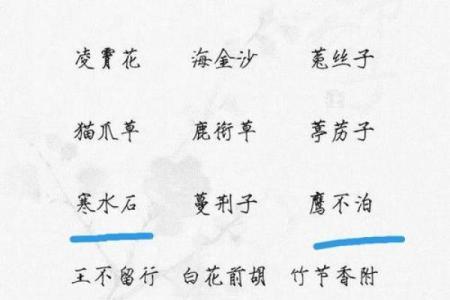 凌霄花 海金沙 菟丝子
猫爪草 鹿衔草 葶苈子
寒水石 蔓荆子 鹰不泊
王不留行 白花前胡 竹节香附